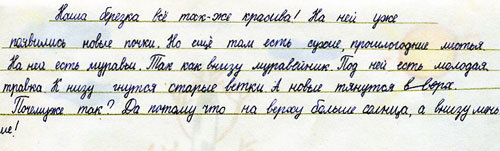 Наша березка всё так-же красива! На ней уже
появились новые почки. Но ещё там есть сухие, прошлогодние листья
На ней есть муравьи. Так как внизу муравейник. Под ней есть молодая
травка. К низу гнутся старые ветки. А новые тянутся в верх.
Почемуже так? Да потому что на верху больше солнца, а внизу мень
ше!